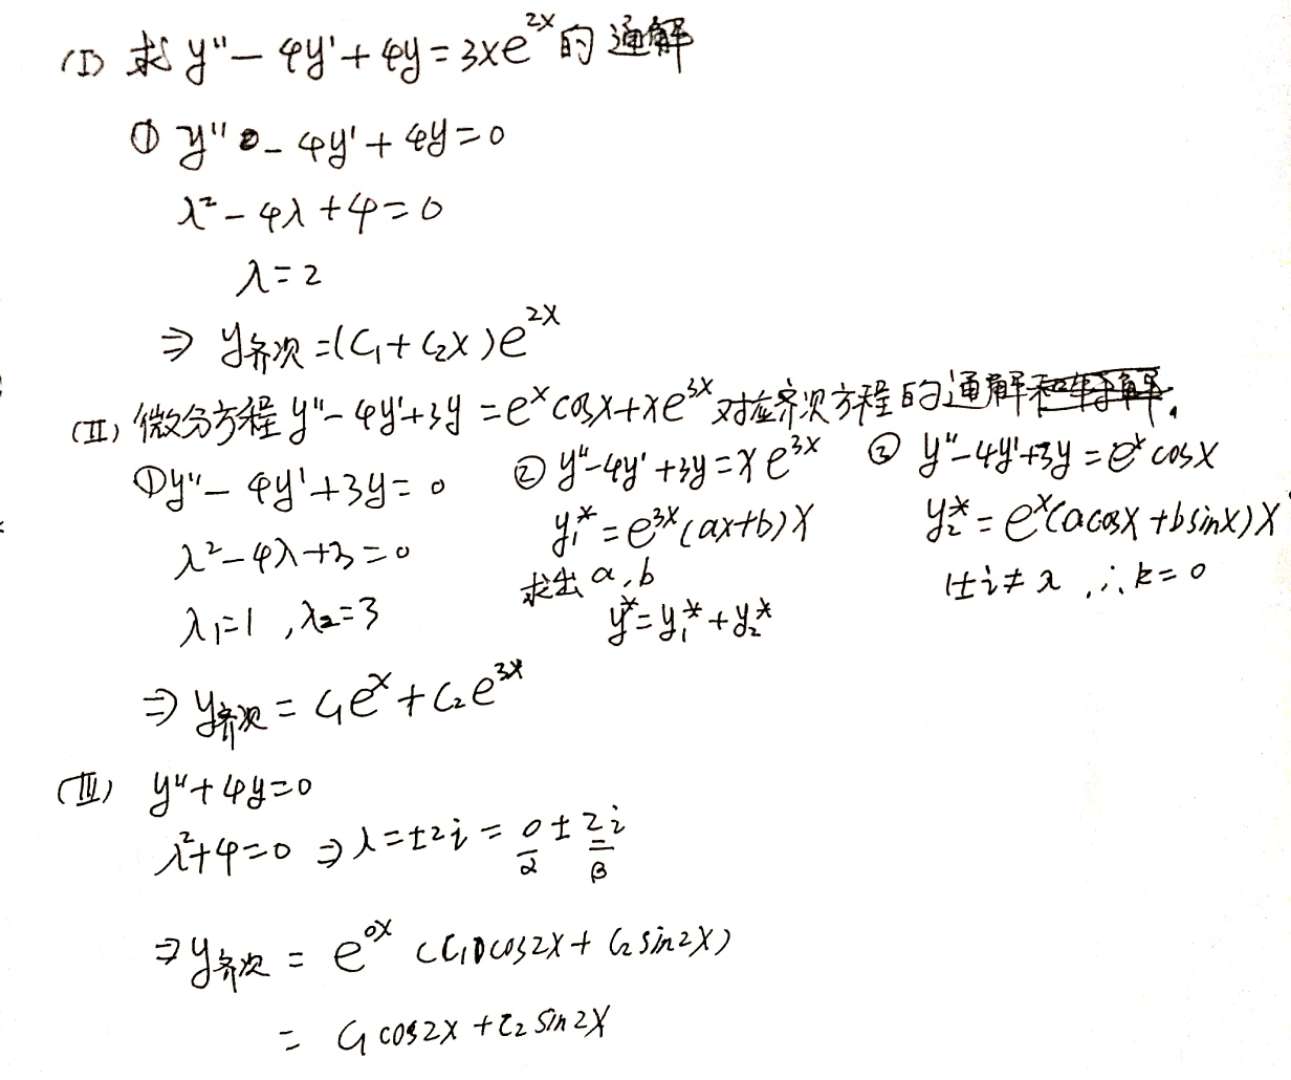 (I) 求 y''-4y'+4y=3xe^{2x} 的通解
① y''-4y'+4y=0
λ²-4λ+4=0
λ=2
⇒ y齐次=(C₁+C₂x)e^{2x}
(II) 微分方程 y''-4y'+3y=e^x cosx+xe^{3x} 对应齐次方程的通解.
① y''-4y'+3y=0
λ²-4λ+3=0
λ₁=1, λ₂=3
⇒ y齐次=C₁e^x+C₂e^{3x}
② y''-4y'+3y=xe^{3x}
y₁*=e^{3x}(ax+b)x
求出 a,b
y*=y₁*+y₂*
③ y''-4y'+3y=e^x cosx
y₂*=e^x(acosx+bsinx)x
1±i≠λ, ∴k=0
(III) y''+4y=0
λ²+4=0 ⇒ λ=±2i=0±2i
α β
⇒ y齐次=e^{0x}(C₁cos2x+C₂sin2x)
=C₁cos2x+C₂sin2x